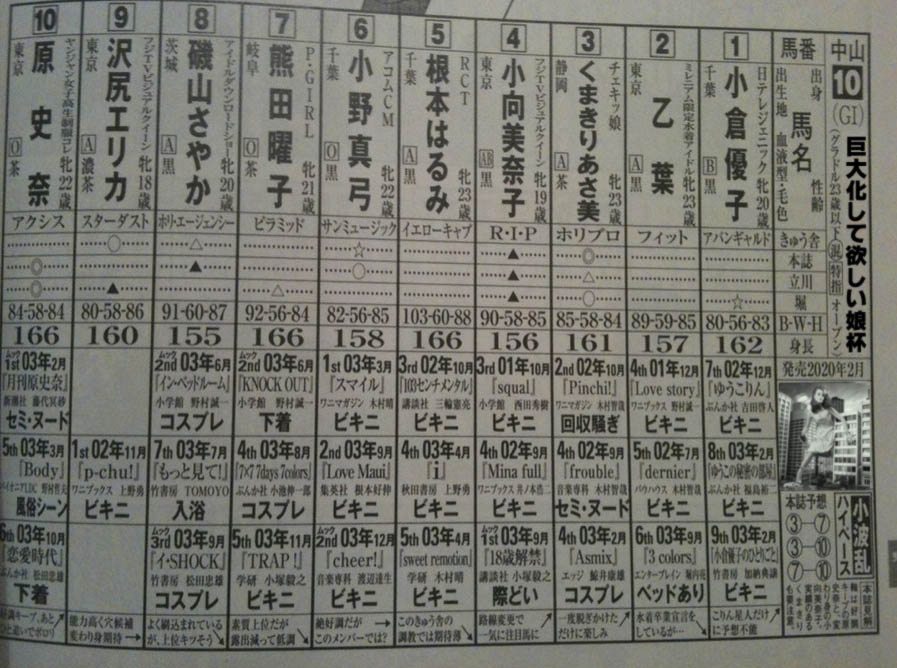 中山
10
(GI)
巨大化して欲しい娘杯
(グラドル23歳以下 混 特指 オープン)
発売2020年2月
馬番
出身 馬名 性齢
出生地 血液型・毛色
きゅう舎
本誌
立川
堀
B-W-H
身長
1
日テレジェニック 牝20歳
小倉優子
千葉 B 黒
アバンギャルド
☆
80-56-83
162
7th 02年12月
『ゆうこりん』
ぶんか社 吉田啓人
ビキニ
8th 03年2月
『ゆうこの秘密の部屋』
ぶんか社 福島裕二
ビキニ
9th 03年9月
『小倉優子のひとりごと』
竹書房 加納典譲
ビキニ
こりん星人だけに予想不能
2
ミレニアム限定水着アイドル 牝23歳
乙葉
東京 A 黒
フィット
89-59-85
157
4th 01年12月
『Love story』
ワニブックス 野村誠一
ビキニ
5th 02年7月
『dernier』
バウハウス 木村智哉
ビキニ
6th 03年9月
『3 colors』
エンターブレイン 堀内花
ベッドあり
水着卒業宣言をしているが…
3
チェキッ娘 牝23歳
くまきりあさ美
静岡 A 茶
ホリプロ
◎
△
○
85-58-84
161
2nd 02年10月
『Pinchi!』
ワニマガジン 木村智哉
回収騒ぎ
4th 02年8月
『frouble』
音楽専科 木村智哉
セミ・ヌード
4th 03年2月
『Asmix』
エッジ 鯨井康雄
コスプレ
一度脱ぎかけただけに楽しみ
4
フジTVビジュアルクイーン 牝19歳
小向美奈子
東京 AB 黒
R・I・P
▲
▲
▲
90-58-85
156
3rd 01年10月
『squal』
小学館 西田秀樹
ビキニ
4th 02年9月
『Mina full』
ワニブックス 井ノ本浩二
ビキニ
ムック 1st 03年9月
『18歳解禁』
講談社 小塚毅之
際どい
路線変更で一気に注目馬に
5
RCT 牝23歳
根本はるみ
千葉 A 黒
イエローキャブ
103-60-88
166
3rd 02年10月
『103センチメンタル』
講談社 三輪憲亮
ビキニ
4th 03年4月
『i』
秋田書房 上野勇
ビキニ
5th 03年4月
『sweet remotion』
学研 木村晴
ビキニ
このきゅう舎の調教では期待薄
6
アコムCM 牝22歳
小野真弓
千葉 O 黒
サンミュージック
☆
○
82-56-85
158
1st 03年3月
『スマイル』
ワニマガジン 木村晴
ビキニ
2nd 03年9月
『Love Maui』
集英社 根本好伸
ビキニ
ムック 2nd 03年12月
『cheer!』
音楽専科 渡辺達生
ビキニ
絶好調だがこのメンバーでは?
7
P・GIRL 牝21歳
熊田曜子
岐阜 O 茶
ピラミッド
△
92-56-84
166
ムック 2nd 03年6月
『KNOCK OUT』
小学館 野村誠一
下着
4th 03年9月
『7×7 7days 7colors』
ぶんか社 小池伸一郎
コスプレ
5th 03年11月
『TRAP!』
学研 小塚毅之
ビキニ
素質上位だが露出減って低調
8
アイドルダウンロードショー 牝20歳
磯山さやか
茨城 A 黒
ホリ・エージェンシー
△
▲
91-60-87
155
ムック 2nd 03年6月
『イン・ベッドルーム』
小学館 野村誠一
コスプレ
7th 03年7月
『もっと見て!』
竹書房 TOMOYO
入浴
ムック 3rd 03年9月
『イ・SHOCK』
竹書房 松田忠雄
コスプレ
よく馴込まれているが、上位キツそう
9
フジTVビジュアルクイーン 牝18歳
沢尻エリカ
東京 A 濃茶
スターダスト
○
▲
80-58-86
160
1st 02年11月
『p-chu!』
ワニブックス 上野勇
ビキニ
能力高く穴候補
変わり身期待
10
ヤンジャン女子高生制服コレ 牝22歳
原史奈
東京 O 茶
アクシス
◎
◎
84-58-84
166
ムック 1st 03年2月
『月刊原史奈』
新潮社 藤代冥砂
セミ・ヌード
5th 03年3月
『Body』
パイオニアLDC 野村哲夫
風俗シーン
6th 03年10月
『恋愛時代』
ぶんか社 松田忠雄
下着
好調キープ、あと
ひと追いでポロリ
小波乱
ハイペース
本誌予想
③―⑦
③―⑩
⑦―⑩
本誌見解